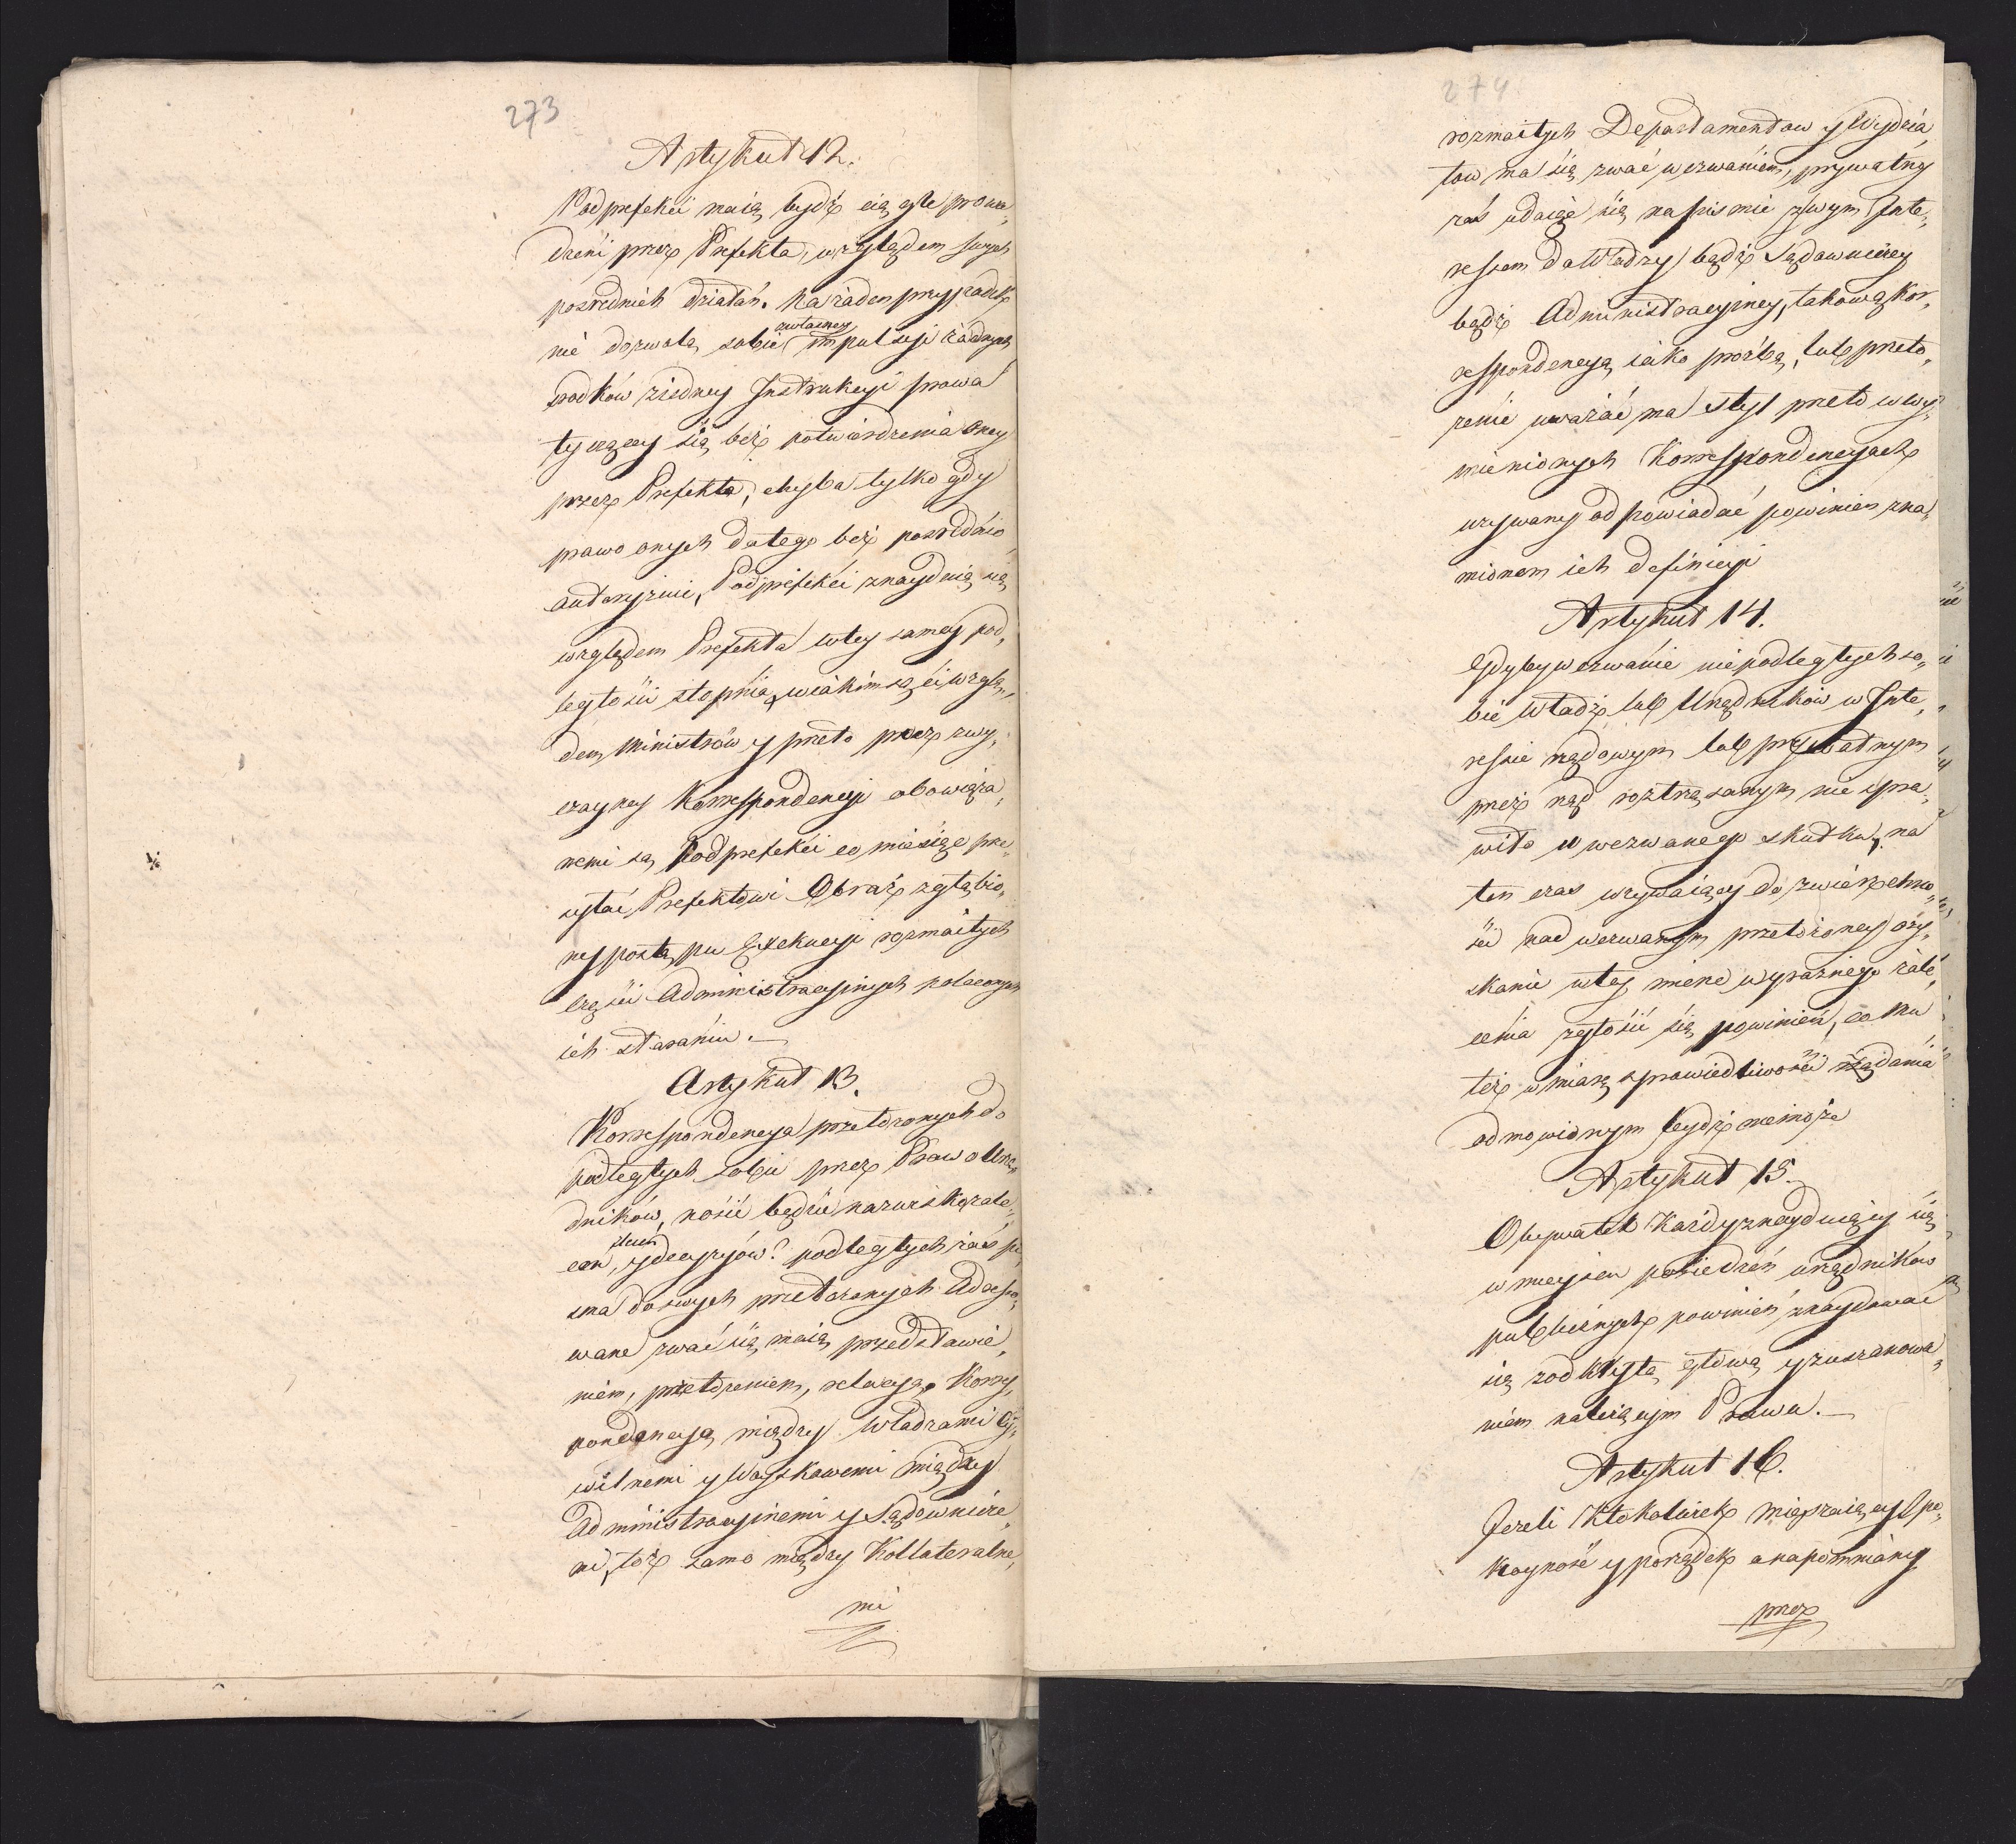 273
Artykuł 12.
Podprefekci maią bydź ciągle prowa„
dzeni przez Prefekta, względem swych
pośrednich działań. Na żaden przypadek
nie dozwolą sobie własney impulsyi żadnych
środków żedney Instrukcyi prawa
tyczącey się bez potwierdzenia oney
przez Prefekta, chyba tylko gdy
prawo onych do tego bez pośrednio
autoryzuie, Podprefekci znayduią się
względem Prefekta w tey samey pod„
ległości stopnia, w iakim są ci wzglę„
dem Ministrów y przeto przez zwy„
czayney Korrespondencyi obowiąza„
nemi są, Podprefekci co miesiąc prze„
syłać Prefektowi Obraz zgłębio„
ny postępu Exekucyi rozmaitych
części Administracyinych poleconych
ich staraniu.
Artykuł 13.
Korrespondencya przełożonych do
podległych sobie przez Prawo Urzę„
dników, nosić będzie nazwisko zale„
ceń, zleceń y decyzyów? podległych zaś pi„
sma do swych przełożonych Adresso„
wane zwać się maią przedstawie„
niem, przełożeniem, relacyą. Korres„
pondencya między Władzami Cy„
wilnemi y Woyskowemi między
Administracyinemi y Sądownicze„
mi, toż samo między Kollateralne„
mi
274
rozmaitych Departamentow y Wydzia„
łow, ma się zwać wezwaniem, prywatny
zaś udaiąc się na piśmie z swym Inte„
ressem do Władzy bądź Sądowniczey
bądź Administracyiney, takową Kor„
respondencyą iako prożbą, lub przeło„
żenie uważać ma Styl przeto w wy„
mienionych Korrespondencyach
używany odpowiadać powinien zna„
mionom ich definicyi
Artykuł 14.
Gdyby wezwanie niepodległych so„
bie Władz lub Urzędników w Inte„
ressie rządowym lub prywatnym
przez rząd roztrząsanym nie spra„
wiło u wezwanego skutku, na
ten czas wzywaiący do zwierzchno„
ści nad wezwanym przełożoney o zy„
skanie w tey mierze wyraźnego zale„
cenia zgłosić się powinien, co mu
też w miarę sprawiedliwości żądania
odmowionym bydź niemoże
Artykuł 15.
Obywatel Każdy znayduiący się
w mieyscu posiedzeń urzędników
publicznych powinien znaydować
się z odkrytą głową y z uszanowa„
niem należącym Prawu.
Artykuł 16.
Jeżeli Ktokolwiek mieszaiący Spo„
koyność y porządek a napomniany
przez